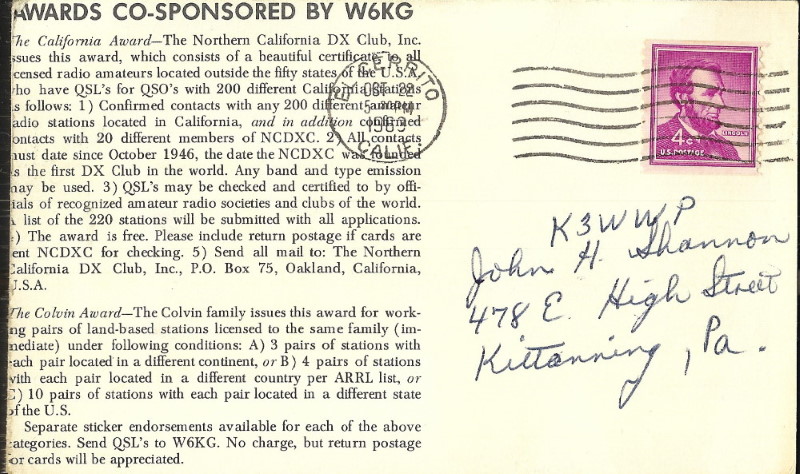 AWARDS CO-SPONSORED BY W6KG
The California Award—The Northern California DX Club, Inc.
issues this award, which consists of a beautiful certificate to all
licensed radio amateurs located outside the fifty states of the U.S.A.
who have QSL's for QSO's with 200 different California stations
as follows: 1) Confirmed contacts with any 200 different amateur
radio stations located in California, and in addition confirmed
contacts with 20 different members of NCDXC. 2) All contacts
must date since October 1946, the date the NCDXC was founded
as the first DX Club in the world. Any band and type emission
may be used. 3) QSL's may be checked and certified to by offi-
cials of recognized amateur radio societies and clubs of the world.
A list of the 220 stations will be submitted with all applications.
4) The award is free. Please include return postage if cards are
sent NCDXC for checking. 5) Send all mail to: The Northern
California DX Club, Inc., P.O. Box 75, Oakland, California,
U.S.A.
The Colvin Award—The Colvin family issues this award for work-
ing pairs of land-based stations licensed to the same family (im-
mediate) under following conditions: A) 3 pairs of stations with
each pair located in a different continent, or B) 4 pairs of stations
with each pair located in a different country per ARRL list, or
C) 10 pairs of stations with each pair located in a different state
of the U.S.
Separate sticker endorsements available for each of the above
categories. Send QSL's to W6KG. No charge, but return postage
for cards will be appreciated.
EL CERRITO
OCT 22
5 PM
1963
CALIF.
LINCOLN
4¢
U.S. POSTAGE
K3WWP
John H. Shannon
478 E. High Street
Kittanning, Pa.